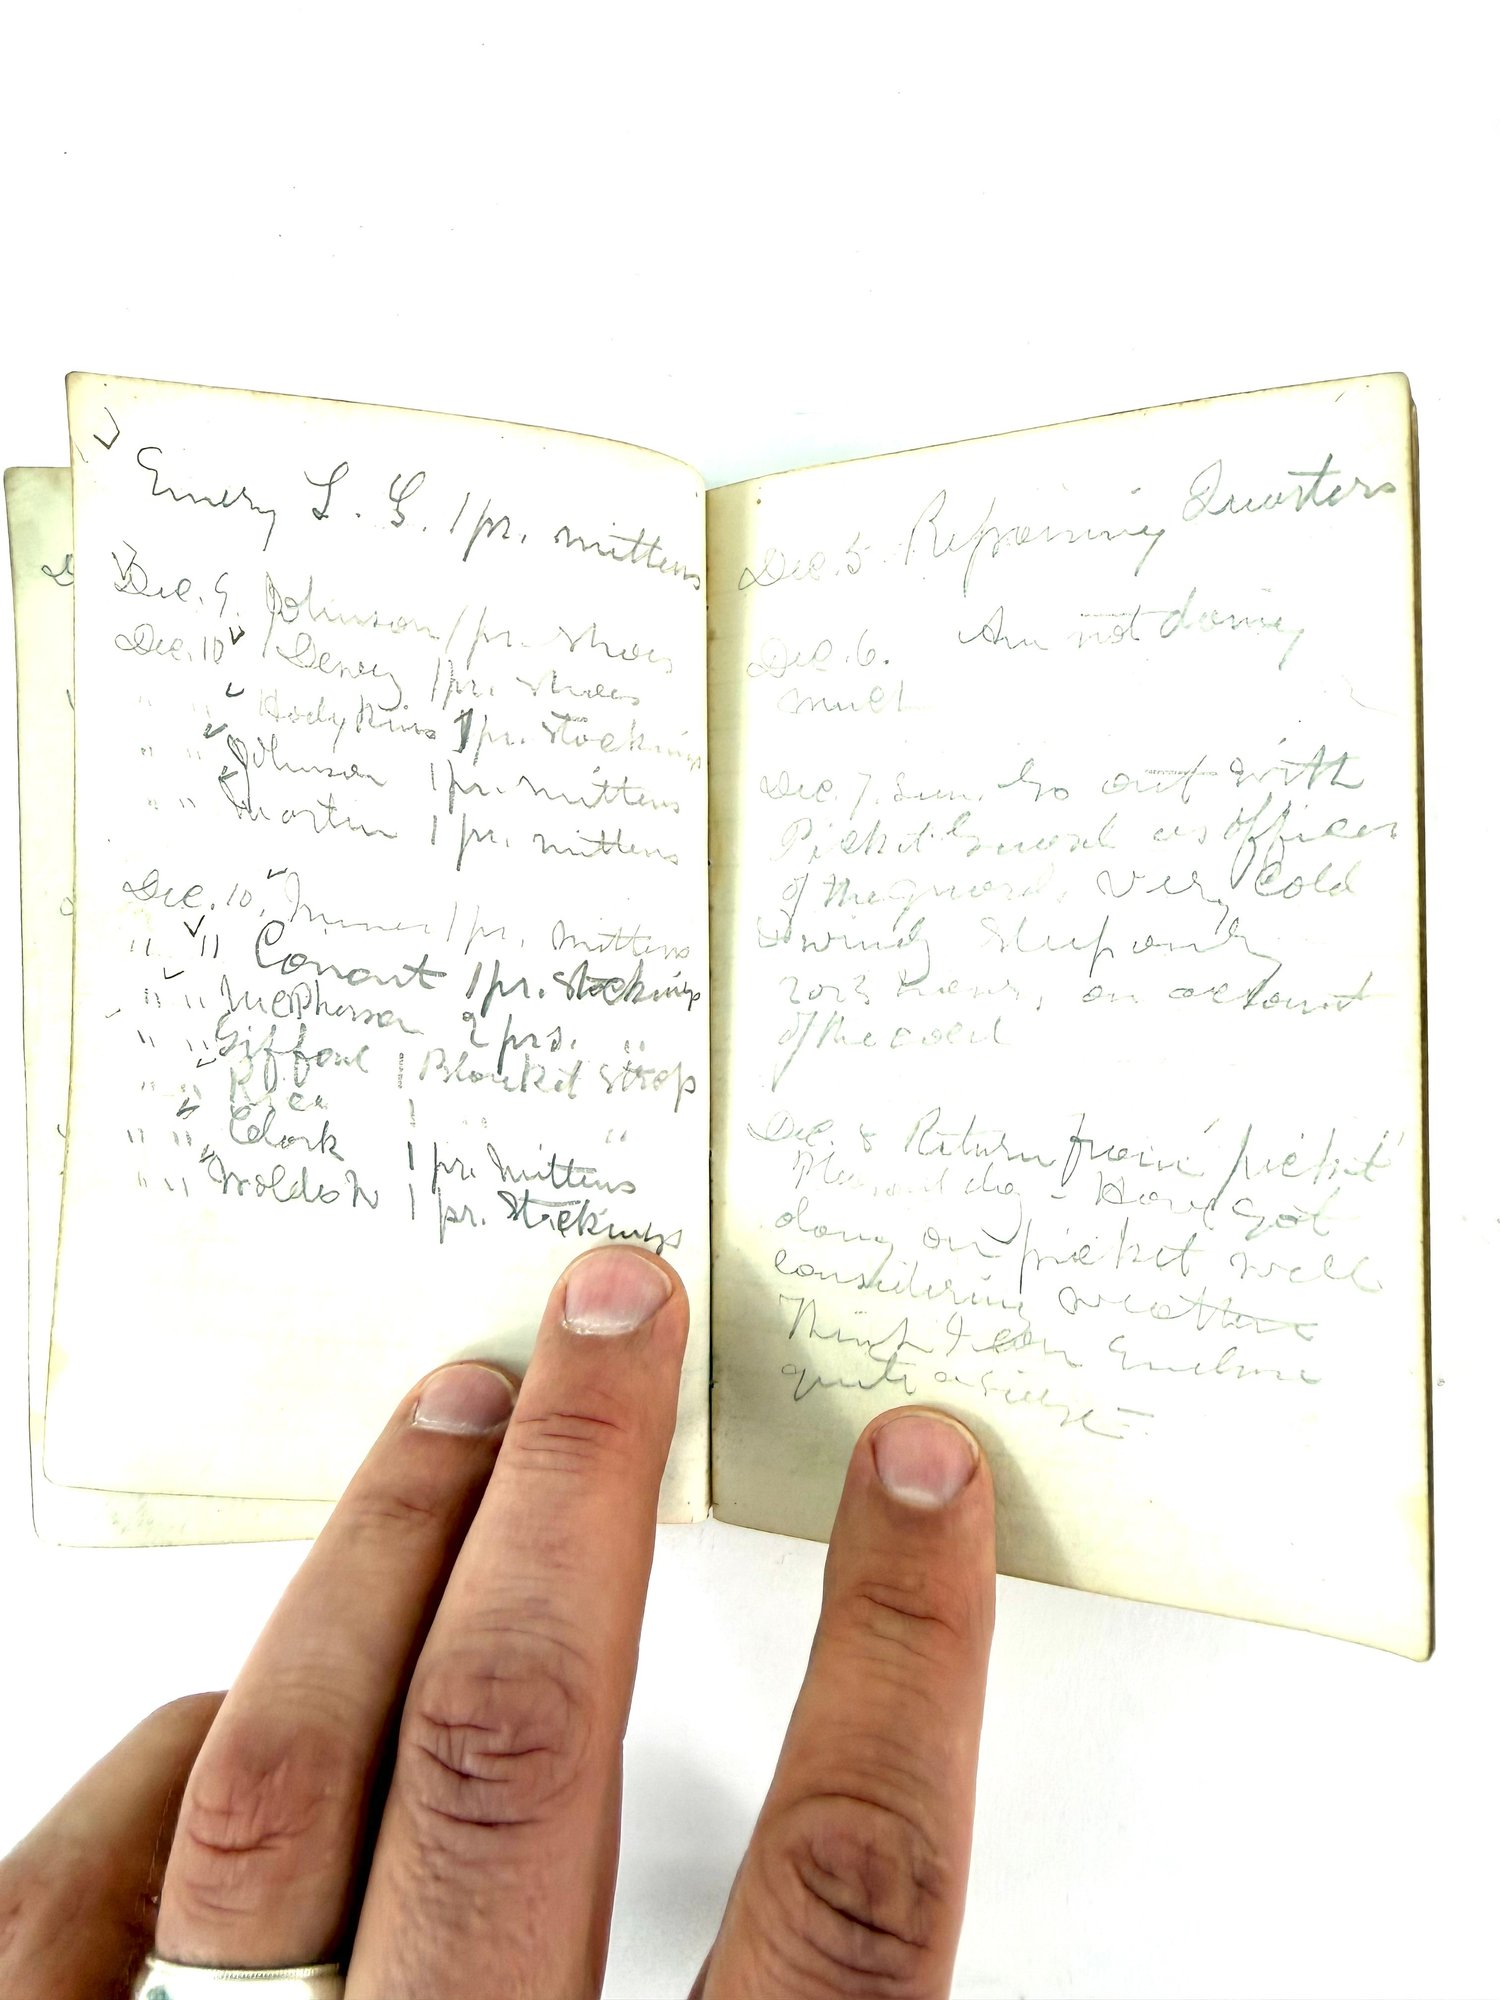 Emery L. G. 1 pr. mittens
Dec. 9. Johnson 1 pr. shoes
Dec. 10 Dewey 1 pr. shoes
" " Hodgkins 1 pr. stockings
" " Johnson 1 pr. mittens
" " Martin 1 pr. mittens
Dec. 10. 1 pr. mittens
" " Conant 1 pr. stockings
" " McPherson 2 prs. "
" " Gifford 1 Blanket Strap
" " Rice 1 " "
" " Clark 1 pr. mittens
" " 1 pr. stockings
Dec. 5. Repairing Quarters
Dec. 6. Am not doing
much
Dec. 7. Sun. Go out with
Picket Guard as officer
of the guard. Very cold
& windy Sleep only
2 or 3 hours, on account
of the cold
Dec. 8 Return from "picket"
Pleasant day - Have got
along on picket well
considering weather
Think I can endure
quite a siege -